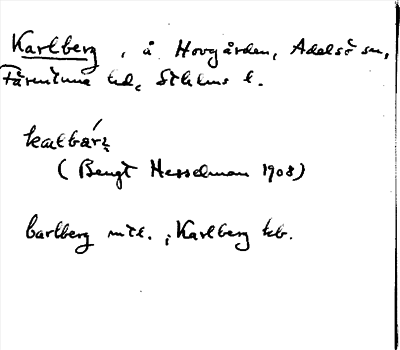 Karlberg, å Hovgården, Adelsö sn,
Färentuna hd, Sthlms l.
(Bengt Hesselman 1908)
Carlberg mtl. ; Karlberg kb.